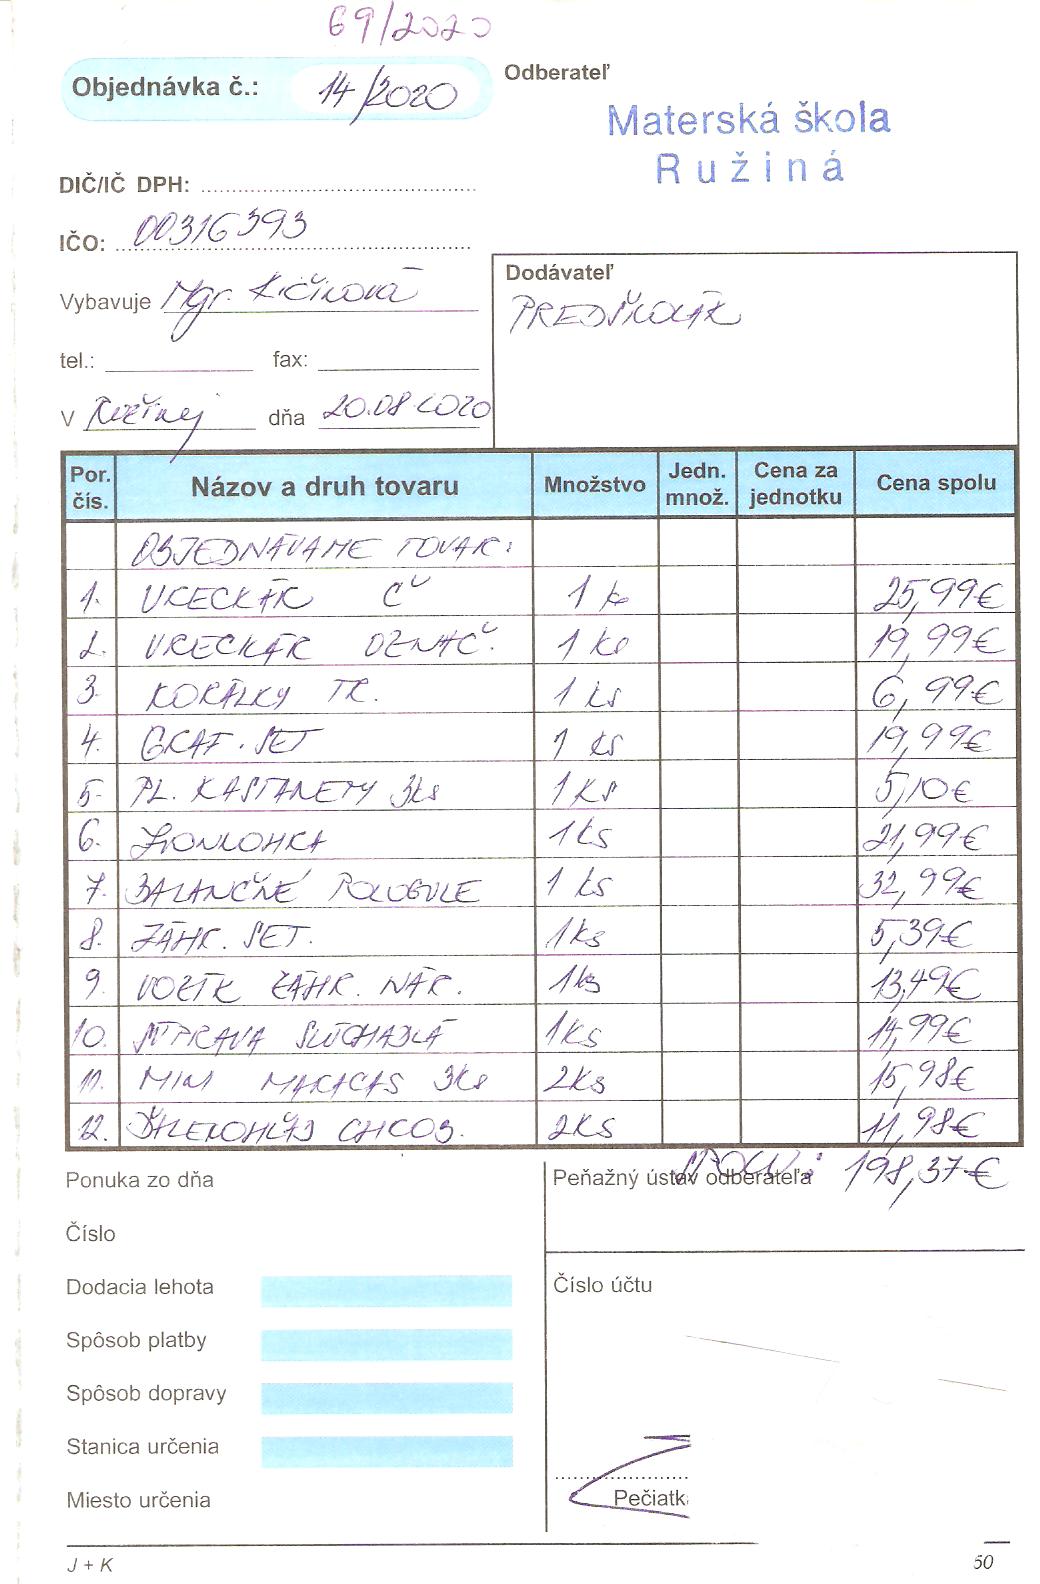 69/2020
Objednávka č.: 14/2020
Odberateľ
Materská škola
Ružiná
DIČ/IČ DPH:
IČO: 00316393
Vybavuje Mgr. Kičinová
tel.: fax:
V Ružinej dňa 20.08 2020
Dodávateľ
PREDŠKOLÁK
Por. čís. Názov a druh tovaru Množstvo Jedn. množ. Cena za jednotku Cena spolu
OBJEDNÁVAME TOVAR:
1. VRECKÁR Č 1 ks 25,99€
2. VRECKÁR OZNAČ. 1 ks 19,99€
3. KORÁLKY TR. 1 ks 6,99€
4. GRAF. SET 1 ks 19,99€
5. PL. KASTANETY 3ks 1 KS 5,10€
6. 1ks 21,99€
7. BALANČNÉ POLOGULE 1 ks 32,99€
8. ZÁHR. SET. 1ks 5,39€
9. VOZÍK ZÁHR. NÁR. 1ks 13,49€
10. SÚPRAVA SLÚCHADLÁ 1KS 14,99€
11. MINI MARACAS 3ks 2Ks 15,98€
12. 2KS 11,98€
SPOLU: 198,37€
Ponuka zo dňa
Peňažný ústav odberateľa
Číslo
Dodacia lehota
Číslo účtu
Spôsob platby
Spôsob dopravy
Stanica určenia
Miesto určenia
Pečiatk
J + K
50